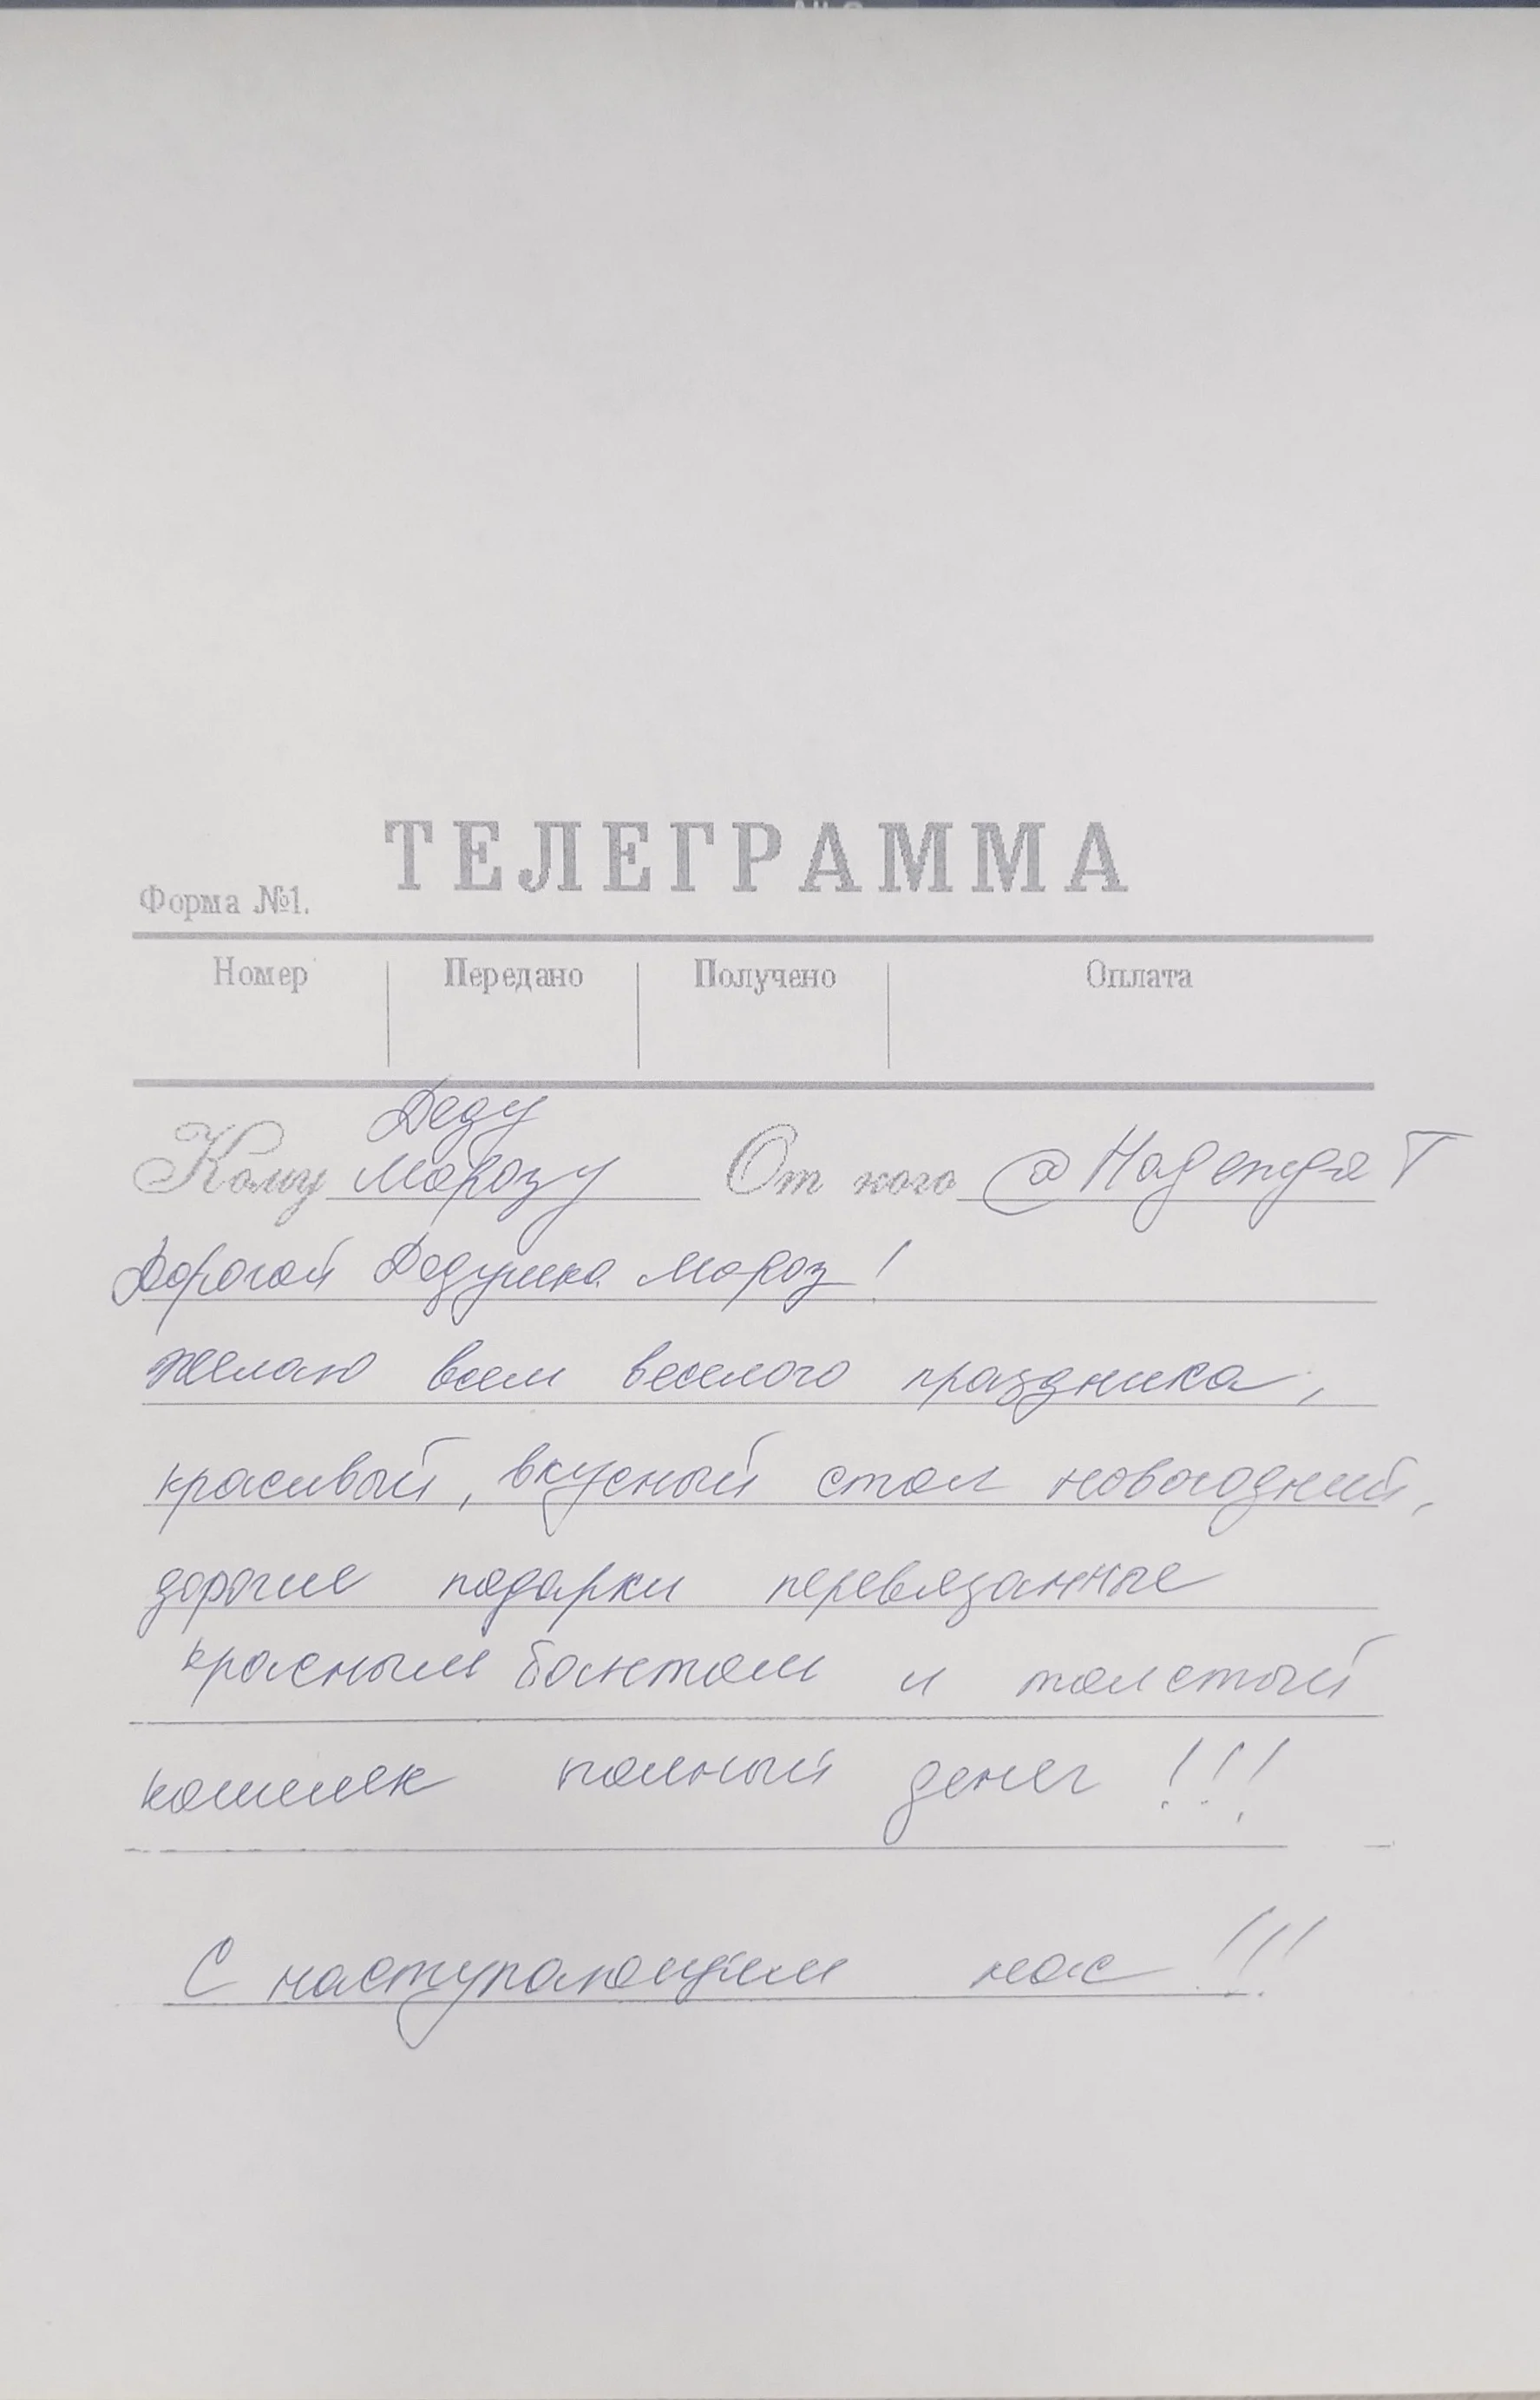 ТЕЛЕГРАММА
Форма №1.
Номер Передано Получено Оплата
Деду
Кому Морозу От кого @Надежда Т
Дорогой Дедушка Мороз!
Желаю всем веселого праздника,
красивый, вкусный стол новогодний,
дорогие подарки перевязанные
красным бантом и толстый
кошелек полный денег!!!
С наступающим нас!!!